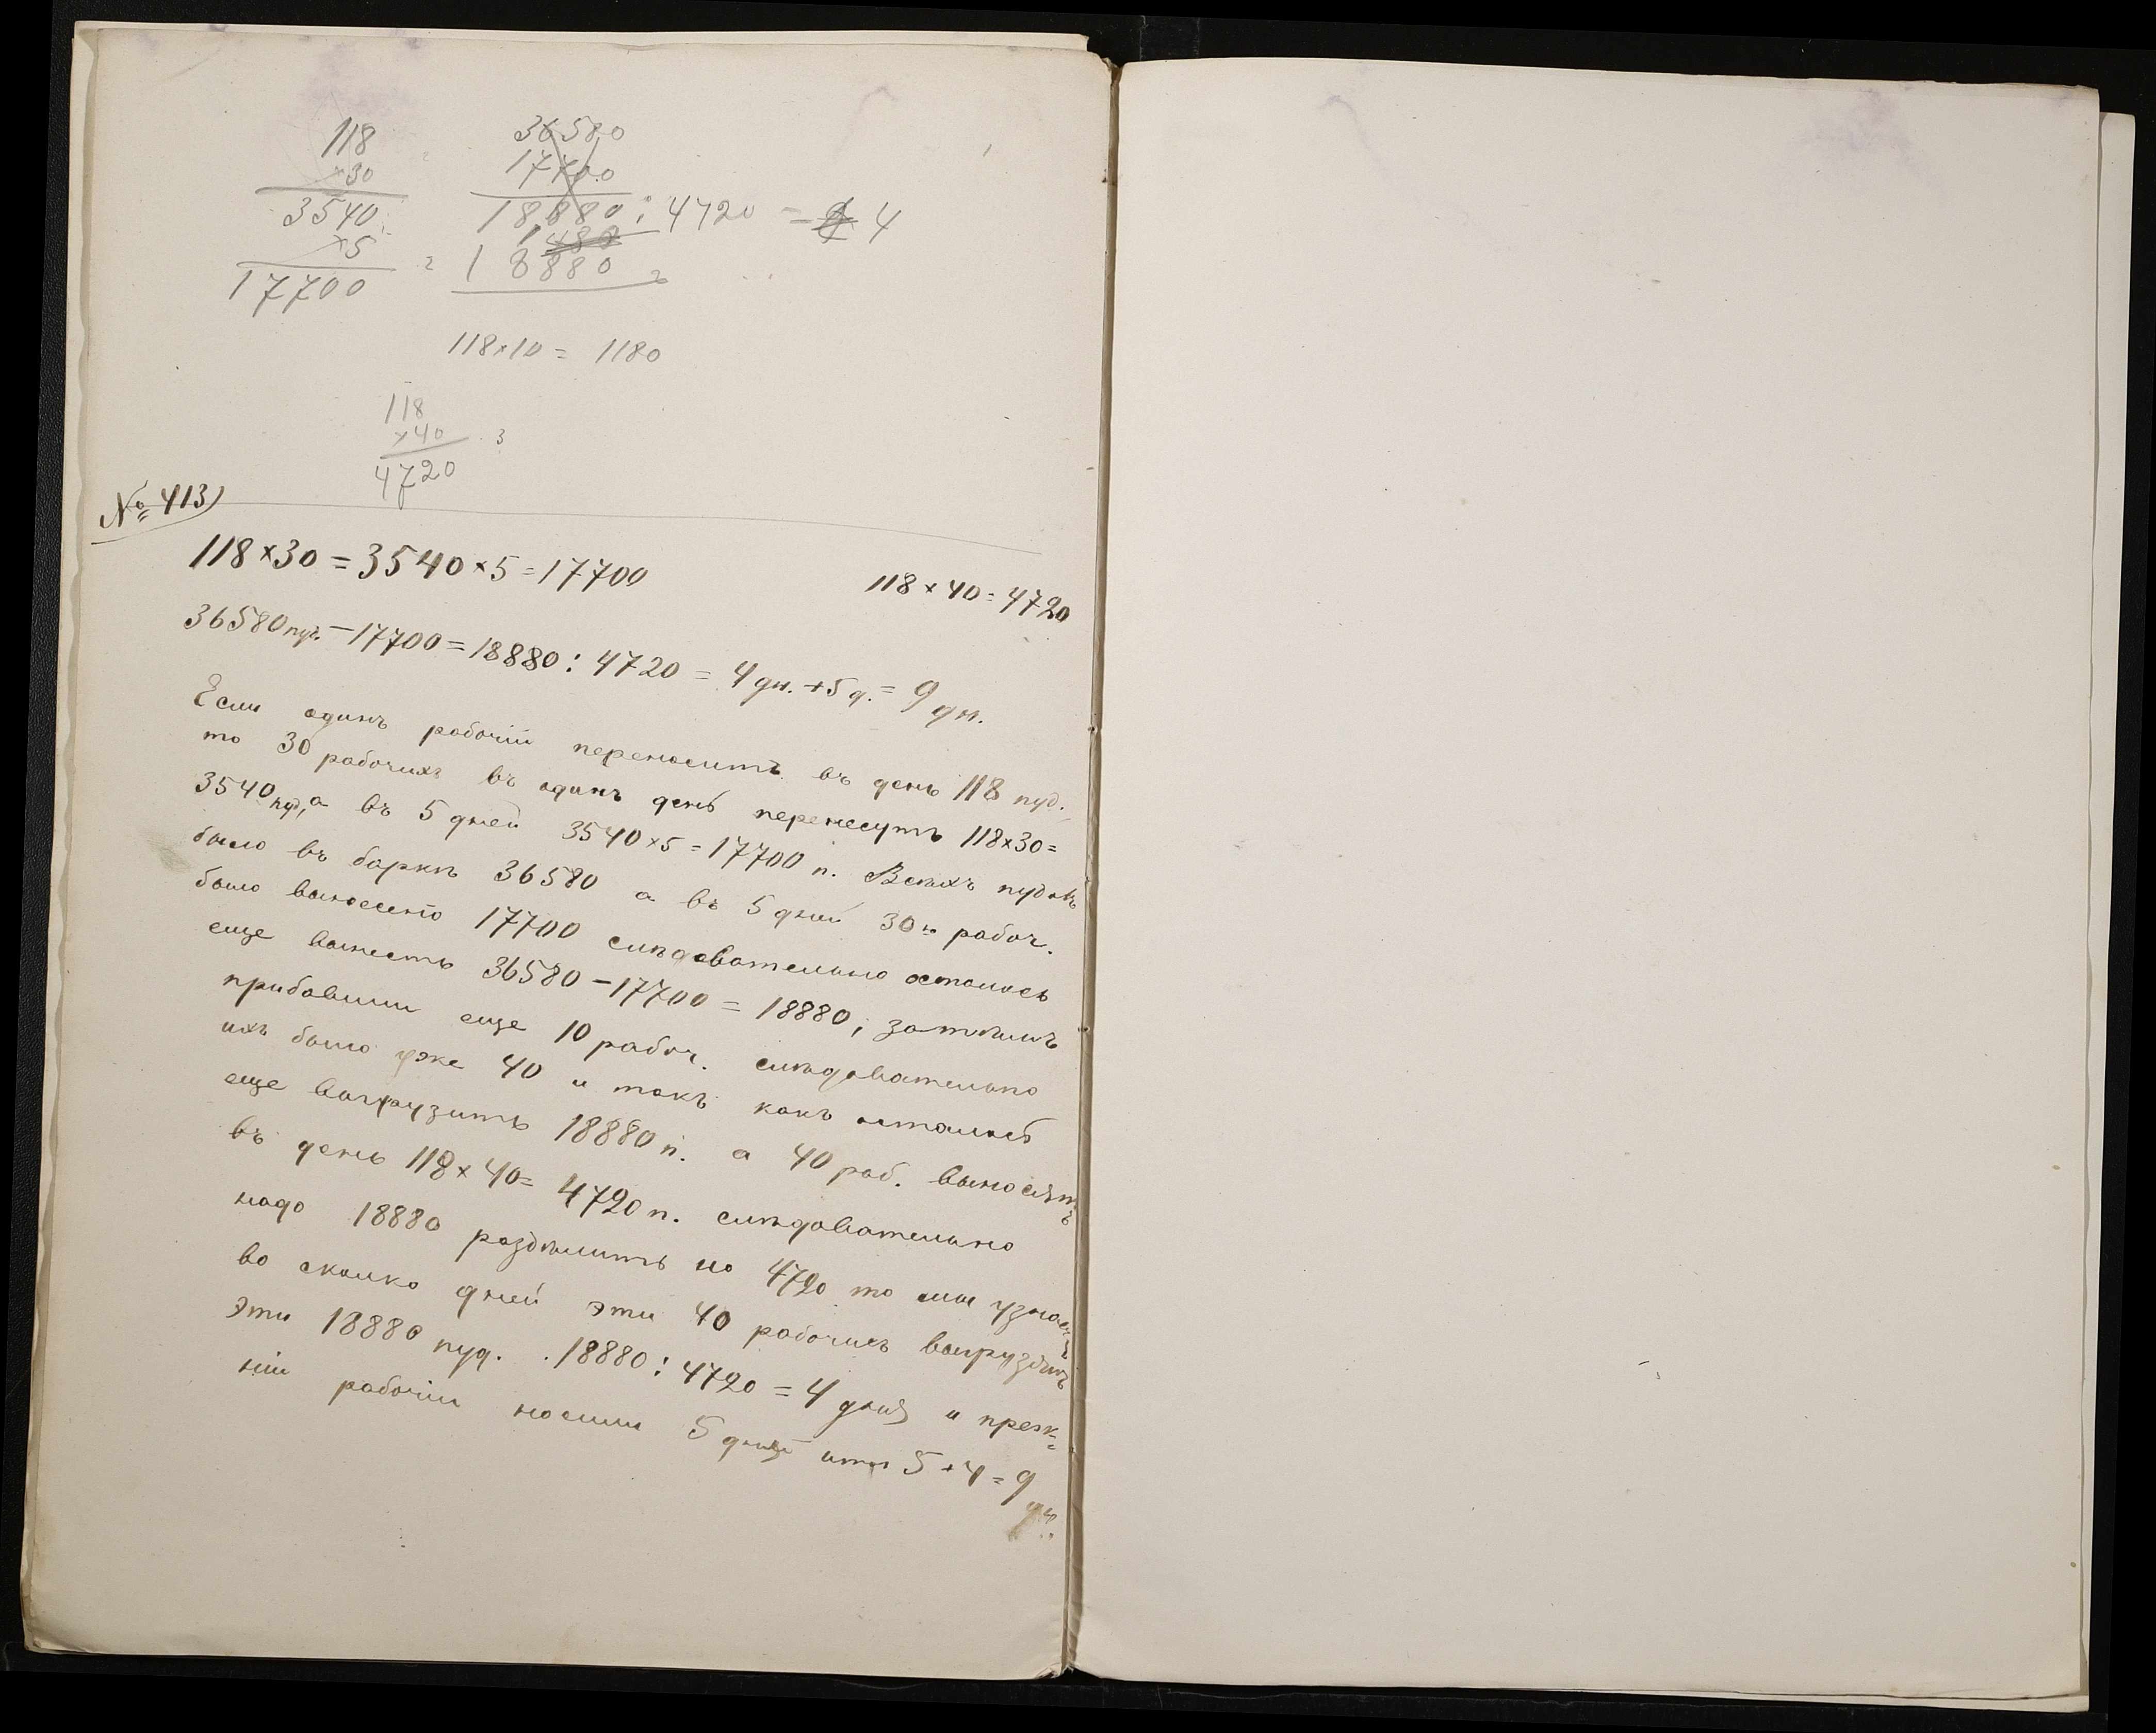 118
×30
3540
×5
17700
36580
17700
18880 : 4720 = 4
18880
118×10 = 1180
118
×40
4720
№ 413)
118×30=3540×5=17700
118×40=4720
36580 пуд.−17700=18880:4720=4 дн.+5 д.=9 дн.
Если одинъ рабочій переноситъ въ день 118 пуд.,
то 30 рабочихъ въ одинъ день перенесутъ 118×30=
3540 пуд, а въ 5 дней 3540×5=17700 п. Всѣхъ пудовъ
было въ баркѣ 36580 а въ 5 дней 30ю рабоч.
было вынесено 17700 слѣдовательно осталось
еще вынесть 36580−17700=18880; затѣмъ
прибавили еще 10 рабоч. слѣдовательно
ихъ было уже 40 и такъ какъ осталось
еще выгрузить 18880 п. а 40 раб. выносятъ
въ день 118×40=4720 п. слѣдовательно
надо 18880 раздѣлить на 4720 то мы узнаемъ
во сколко дней эти 40 рабочихъ выгрузятъ
эти 18880 пуд. 18880:4720=4 дня и преж=
ніи рабочіи носили 5 дней 5+4=9
дн.